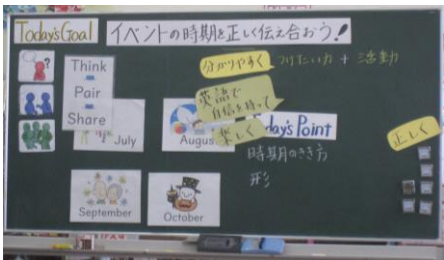 Today's Goal
イベントの時期を正しく伝え合おう!
Think
Pair
Share
分かりやすく
つけたい力 + 活動
英語で
自信を持って
楽しく
正しく
July
Augus
day's Point
時期のきき方
形
September
October